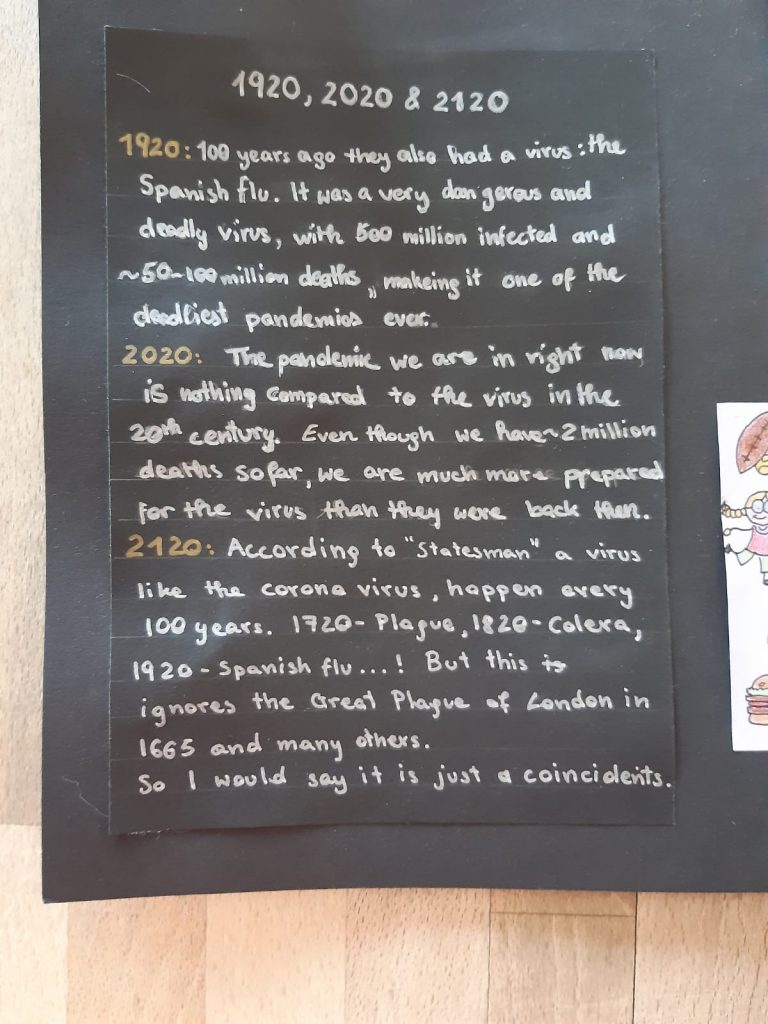 1920, 2020 & 2120
1920: 100 years ago they also had a virus: the
Spanish flu. It was a very dangerous and
deadly virus, with 500 million infected and
~50-100 million deaths, makeing it one of the
deadliest pandemics ever.
2020: The pandemic we are in right now
is nothing compared to the virus in the
20th century. Even though we have ~2 million
deaths so far, we are much more prepared
for the virus than they were back then.
2120: According to "Statesman" a virus
like the corona virus, happen every
100 years. 1720 - Plague, 1820 - Colera,
1920 - Spanish flu...! But this
ignores the Great Plague of London in
1665 and many others.
So I would say it is just a coincidents.